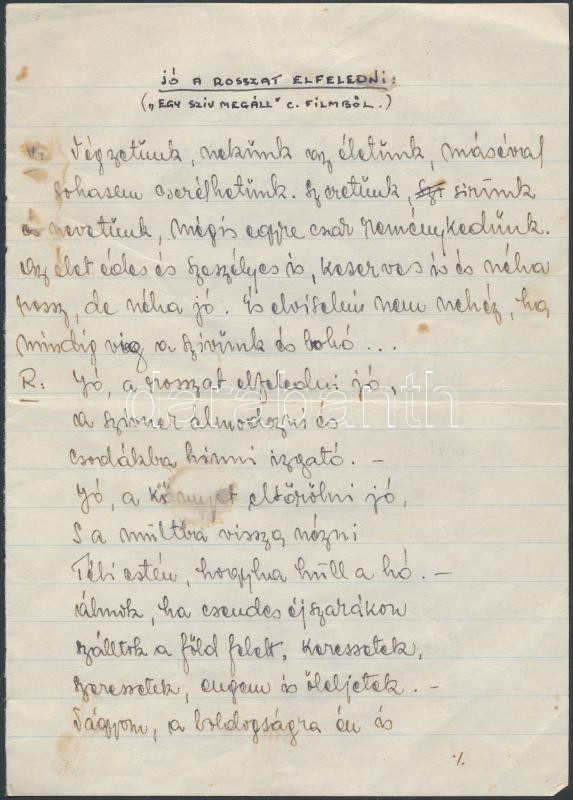 JÓ A ROSSZAT ELFELEDNI:
("EGY SZÍV MEGÁLL" C. FILMBŐL.)
Végzetünk, nekünk az életünk, máséval
sohasem cserélhetünk. Szeretünk, sirunk
és nevetünk, mégis egyre csak reménykedünk.
Az élet édes és szeszélyes is, keserves is és néha
rossz, de néha jó. És elviselni nem nehéz, ha
mindig vig a szivünk és bohó...
R: Jó, a rosszat elfeledni jó,
a szivnek álmodozni és
csodákba hinni izgató. –
Jó, a könnyet eltörölni jó,
S a múltba vissza nézni
Téli estén, hogyha hull a hó. –
álmok, ha csendes éjszakákon
szálltok a föld felett, keressetek,
szeressetek, engem is öleljetek. –
Vágyom, a boldogságra én is
./.
darabanth